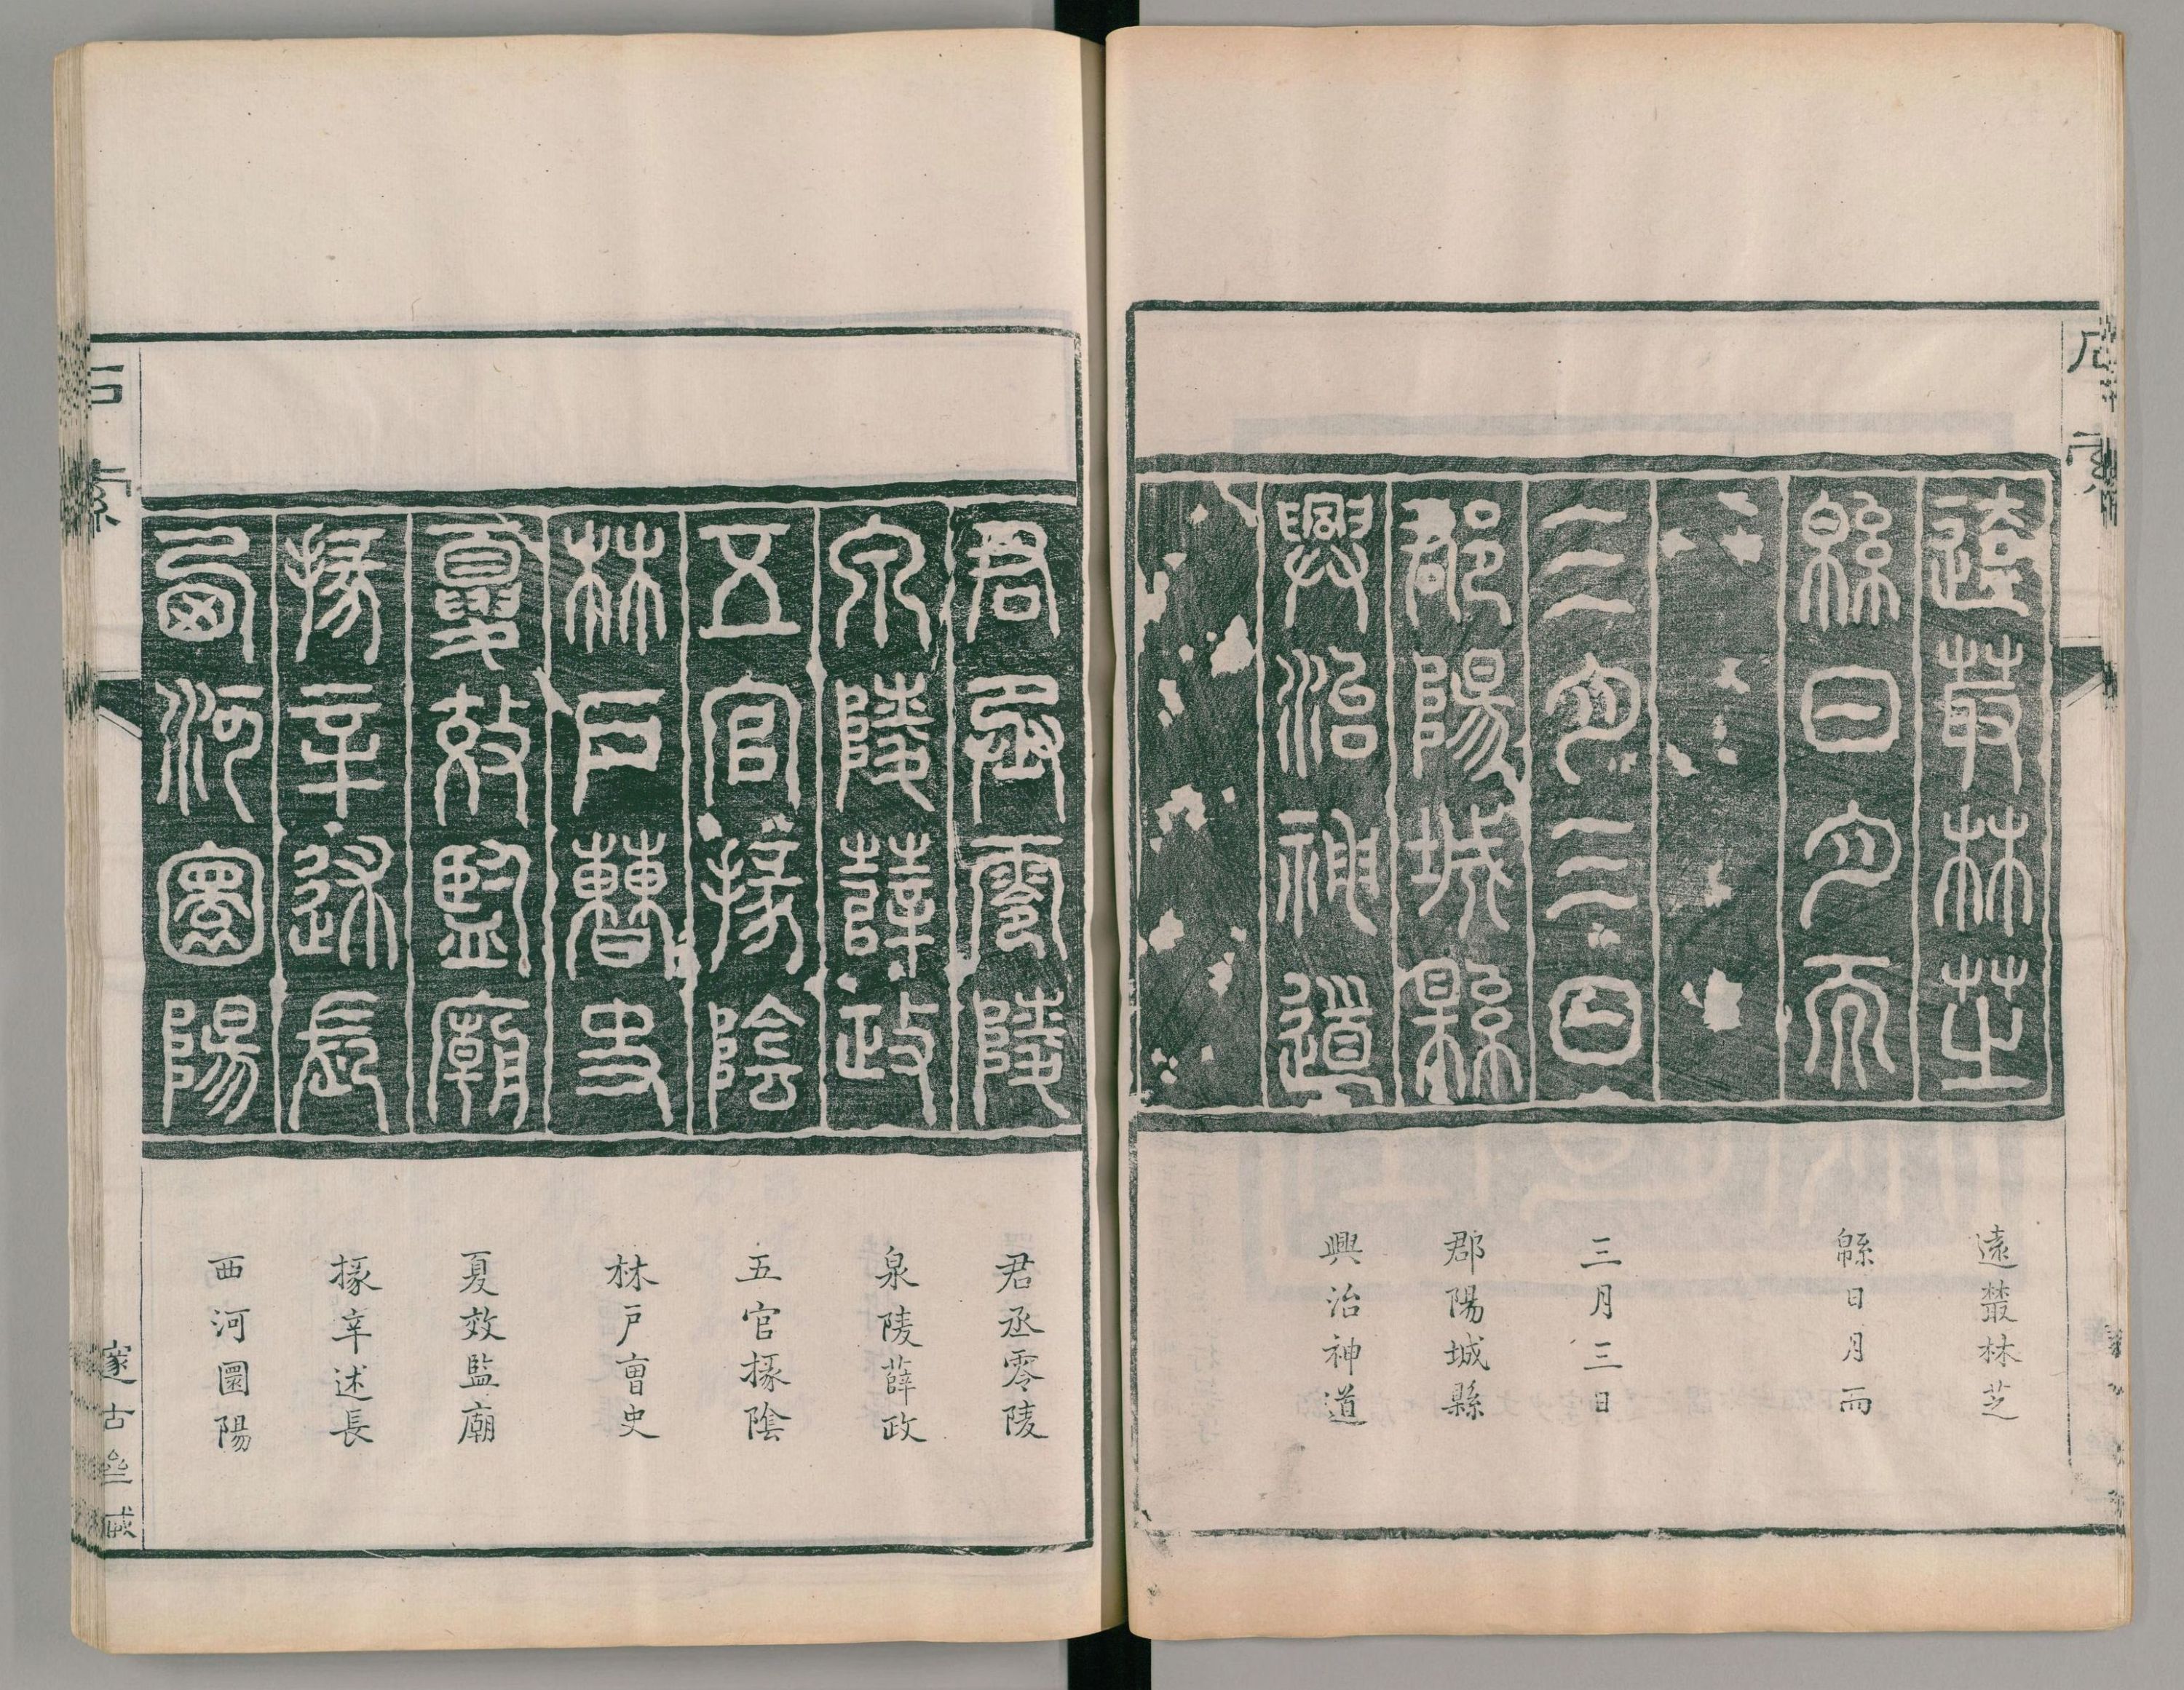 遠藂林芝
緜日月而
三月三日
郡陽城縣
興治神道
遠藂林芝
緜日月而
三月三日
郡陽城縣
興治神道
君丞零陵
泉陵薛政
五官掾陰
林戶曹史
夏效監廟
掾辛述長
西河圜陽
君丞零陵
泉陵薛政
五官掾陰
林戶曺史
夏效監廟
掾辛述長
西河圜陽
石索
邃古坒